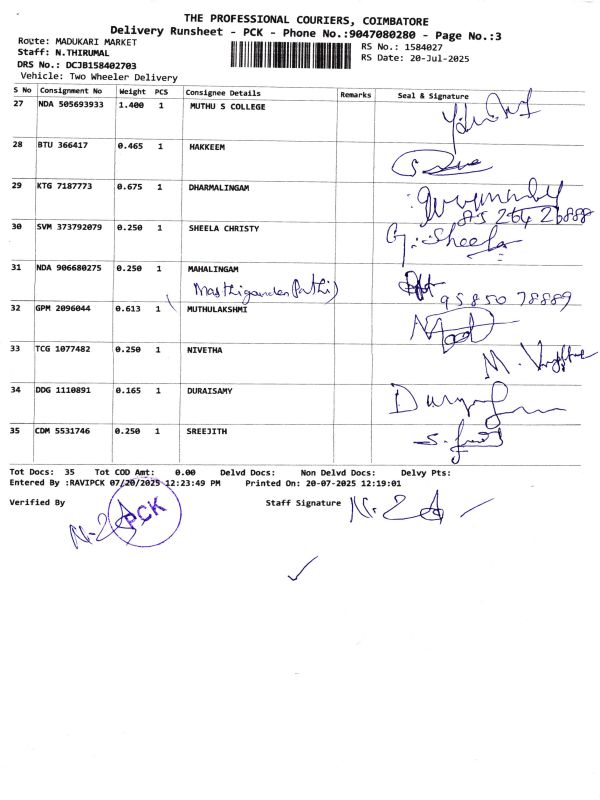 THE PROFESSIONAL COURIERS, COIMBATORE
Delivery Runsheet - PCK - Phone No.:9047080280 - Page No.:3
Route: MADUKARI MARKET
Staff: N.THIRUMAL
DRS No.: DCJB158402703
Vehicle: Two Wheeler Delivery
RS No.: 1584027
RS Date: 20-Jul-2025
S No Consignment No Weight PCS Consignee Details Remarks Seal & Signature
27 NDA 505693933 1.400 1 MUTHU S COLLEGE
28 BTU 366417 0.465 1 HAKKEEM
29 KTG 7187773 0.675 1 DHARMALINGAM
30 SVM 373792079 0.250 1 SHEELA CHRISTY G. Sheela
31 NDA 906680275 0.250 1 MAHALINGAM
95850 78889
32 GPM 2096044 0.613 1 MUTHULAKSHMI
33 TCG 1077482 0.250 1 NIVETHA
34 DDG 1110891 0.165 1 DURAISAMY
35 CDM 5531746 0.250 1 SREEJITH
Tot Docs: 35 Tot COD Amt: 0.00 Delvd Docs: Non Delvd Docs: Delvy Pts:
Entered By :RAVIPCK 07/20/2025 12:23:49 PM Printed On: 20-07-2025 12:19:01
Verified By Staff Signature
PCK